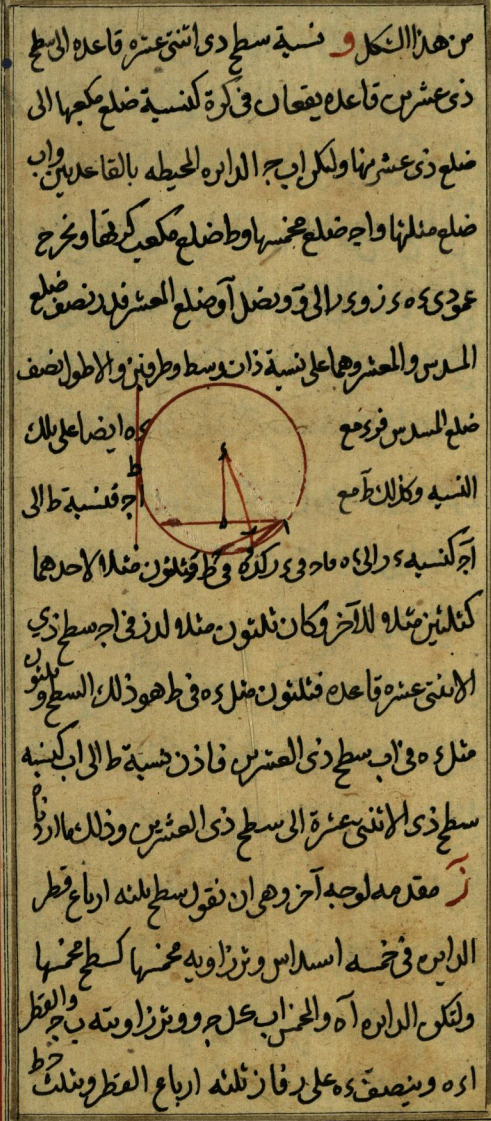 من هذا الشكل و نسبة سطح ذى اثنتى عشره قاعده الى سطح
ذى عشرين قاعده يقعان فى كرة كنسبة ضلع مكعبها الى
ضلع ذى عشرينها وليكن اب ج الدايره المحيطه بالقاعدتين واب
ضلع مثلثها واج ضلع مخمسها وط ضلع مكعب كرتها ونخرج
عمودى ء ه ء ز و ء ر الى و ونصل ا و ضلع المعشر فـ نصف ضلع
المسدس والمعشر وهما على نسبة ذات وسط وطرفين والاطول نصف
ضلع المسدس فـ مع
ء ه ايضا على تلك
النسبه وكذلك ط مع
اج فنسبة ط الى
اج كنسبه ء ر الى ء ه فثلثون مثلا لاحدهما
كثلثين مثلا للآخر وكان ثلثون مثلا لـ فى اج سطح ذي
الاثنتى عشره قاعده فثلثون مثل ء ه فى ط هو ذلك السطح وثلثون
مثل ء ه فى اب سطح ذى العشرين فاذن نسبة ط الى اب كنسبه
سطح ذى الاثنتى عشرة الى سطح ذى العشرين وذلك ما اردناه
ز مقدمه لوجه آخر وهى ان نقول سطح ثلثه ارباع قطر
الدايره فى خمسه اسداس وتر زاويه مخمسها كسطح مخمسها
ولتكن الدايره اه والمخمس اب ووتر زاويته ب ج والقطر
ا ء ه وينصف ء ه على ر فا ز ثلثه ارباع القطر ويثلث خط
ء
ا
ط